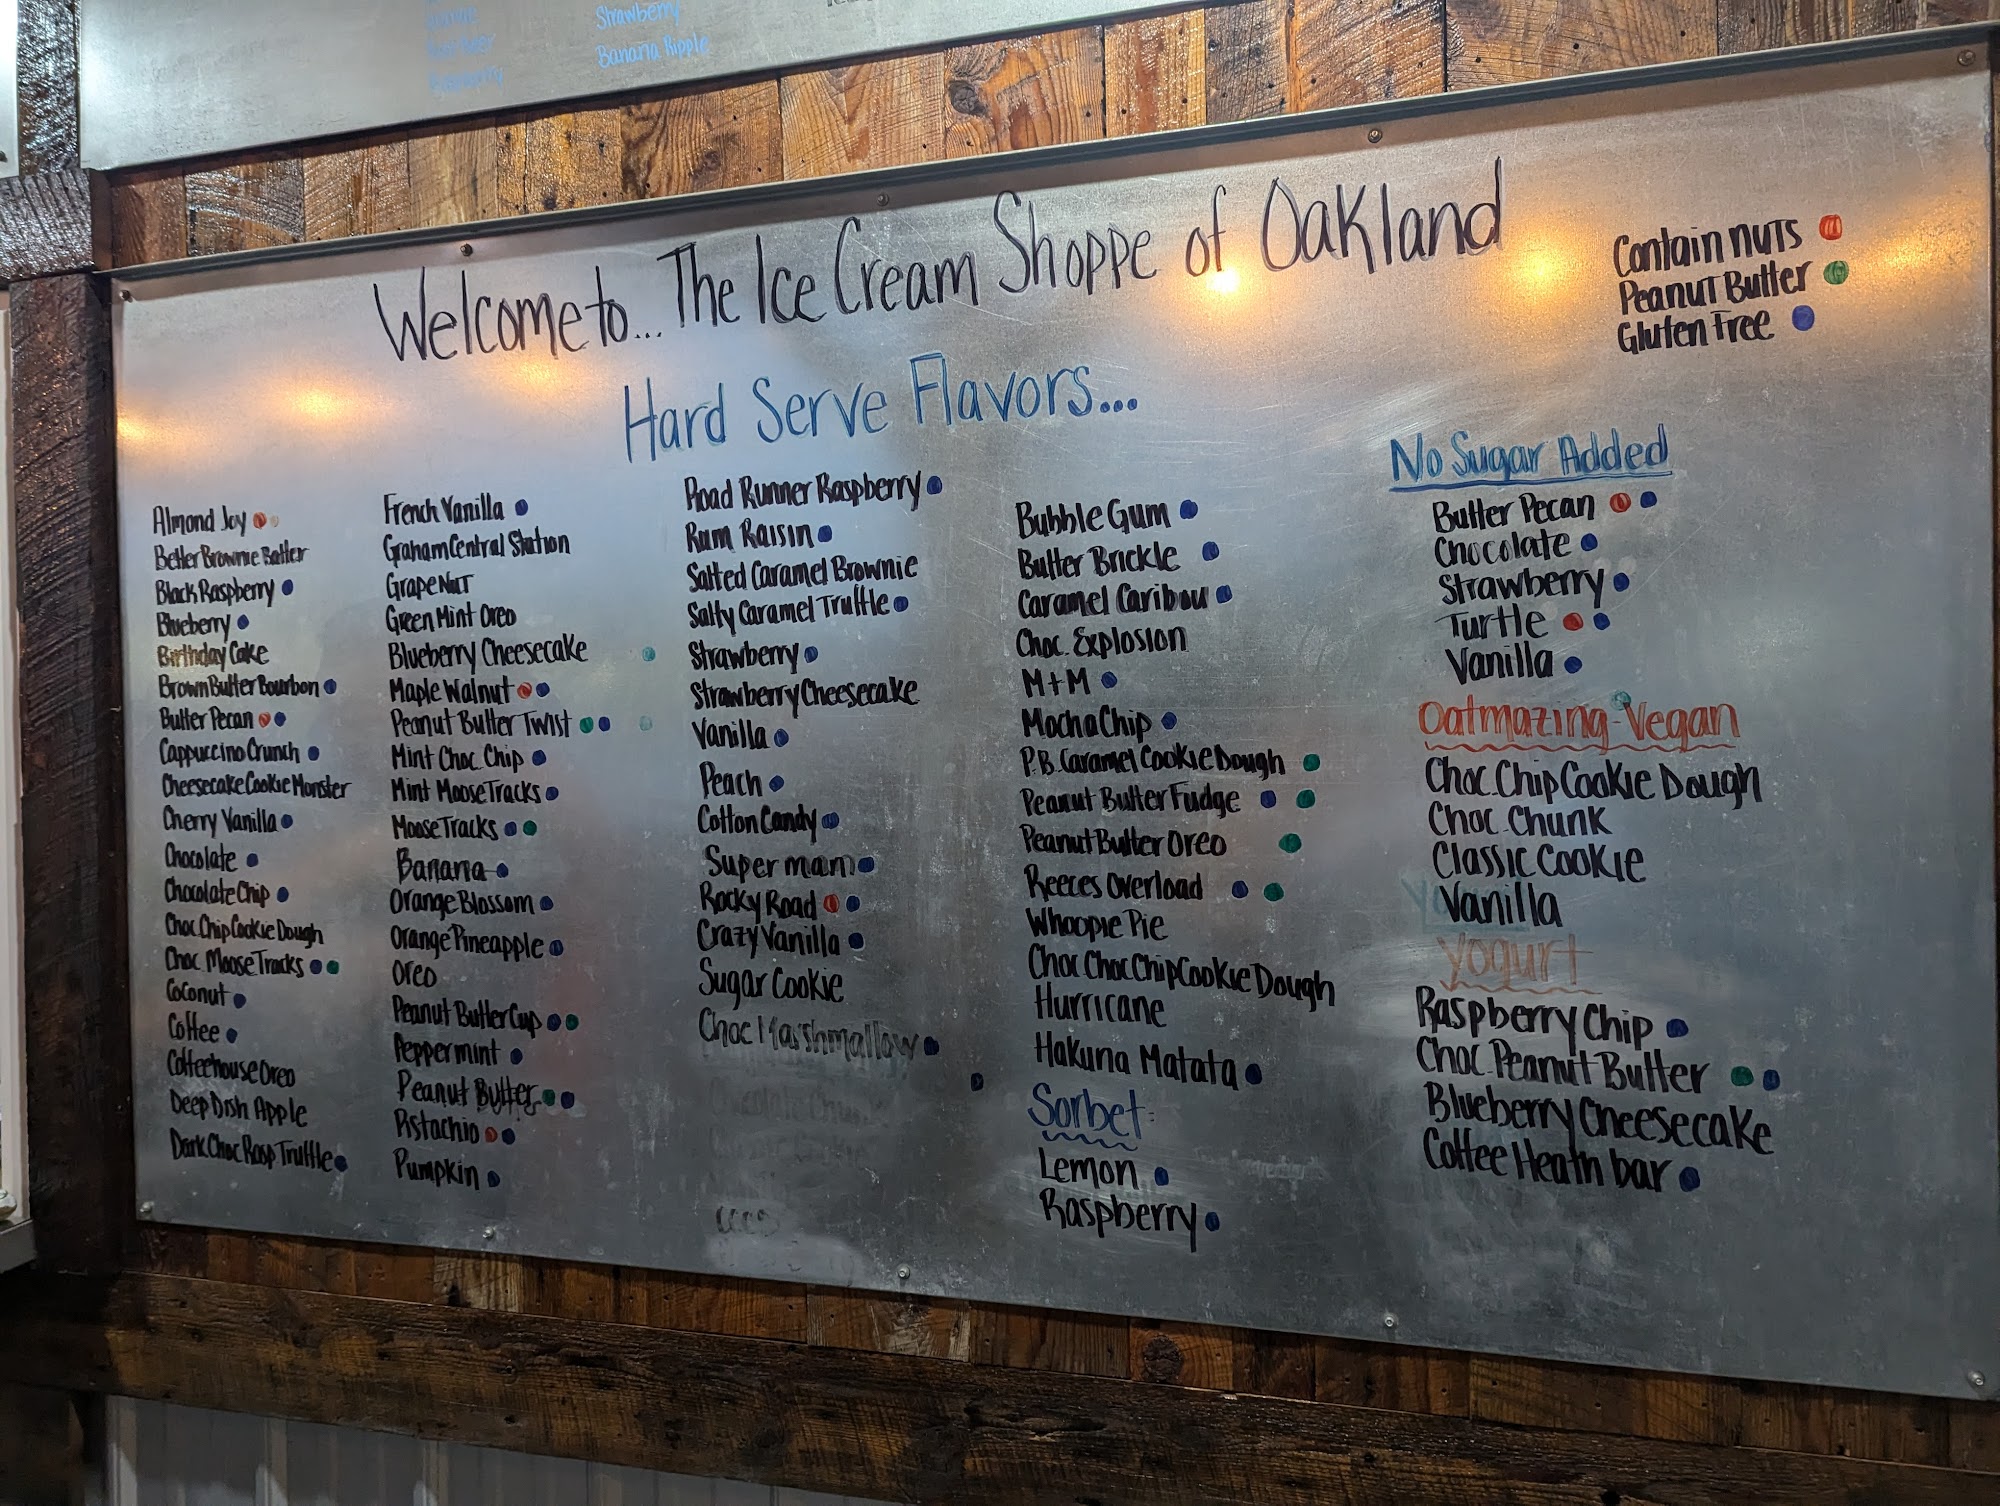 Strawberry
Banana Ripple
Welcome to... The Ice Cream Shoppe of Oakland
Contain nuts
Peanut Butter
Gluten Free
Hard Serve Flavors...
Almond Joy
Better Brownie Batter
Black Raspberry
Blueberry
Birthday Cake
Brown Butter Bourbon
Butter Pecan
Cappuccino Crunch
Cheesecake Cookie Monster
Cherry Vanilla
Chocolate
Chocolate Chip
Choc Chip Cookie Dough
Choc. Moose Tracks
Coconut
Coffee
Coffeehouse Oreo
Deep Dish Apple
Dark Choc Rasp Truffle
French Vanilla
Graham Central Station
Grape Nut
Green Mint Oreo
Blueberry Cheesecake
Maple Walnut
Peanut Butter Twist
Mint Choc. Chip
Mint Moose Tracks
Moose Tracks
Banana
Orange Blossom
Orange Pineapple
Oreo
Peanut Butter Cup
Peppermint
Peanut Butter
Pistachio
Pumpkin
Road Runner Raspberry
Rum Raisin
Salted Caramel Brownie
Salty Caramel Truffle
Strawberry
Strawberry Cheesecake
Vanilla
Peach
Cotton Candy
Super man
Rocky Road
Crazy Vanilla
Sugar Cookie
Choc Marshmallow
Bubble Gum
Butter Brickle
Caramel Caribou
Choc. Explosion
M+M
Mocha Chip
P.B. Caramel Cookie Dough
Peanut Butter Fudge
Peanut Butter Oreo
Reeces Overload
Whoopie Pie
Choc Choc Chip Cookie Dough
Hurricane
Hakuna Matata
Sorbet:
Lemon
Raspberry
No Sugar Added
Butter Pecan
Chocolate
Strawberry
Turtle
Vanilla
Oatmazing-Vegan
Choc. Chip Cookie Dough
Choc. Chunk
Classic Cookie
Vanilla
Yogurt
Raspberry Chip
Choc. Peanut Butter
Blueberry Cheesecake
Coffee Heath bar